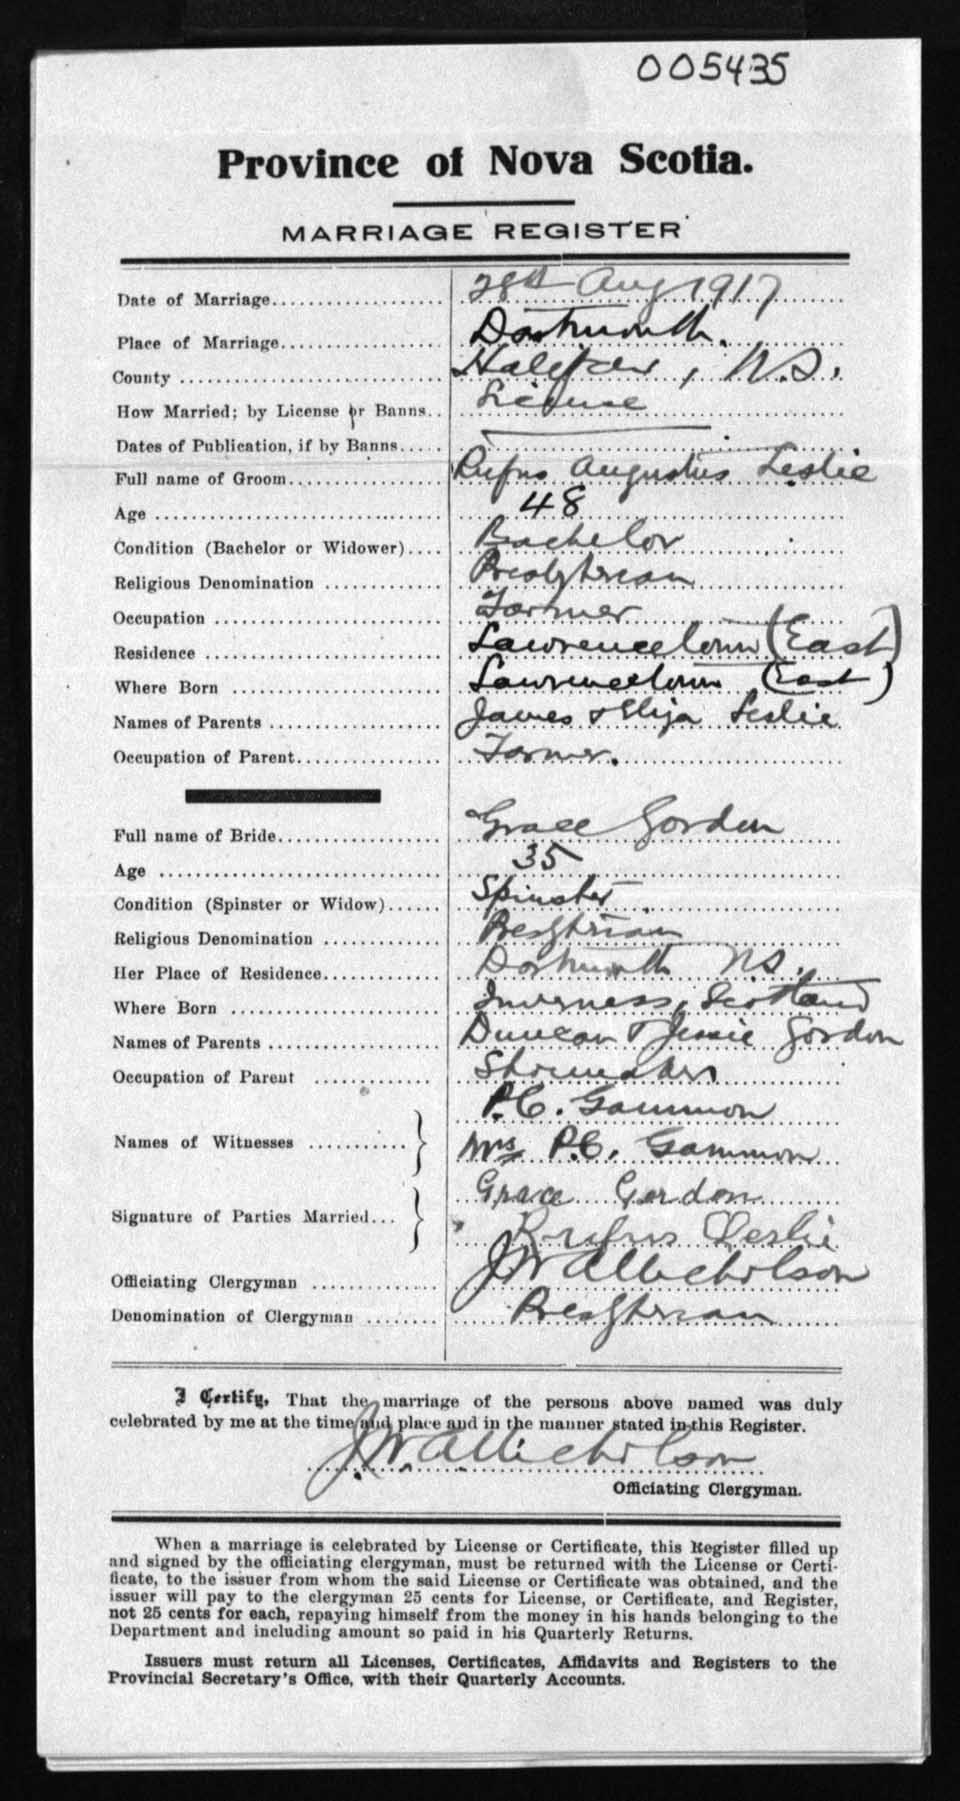 005435
Province of Nova Scotia.
MARRIAGE REGISTER
Date of Marriage 28th Aug 1917
Place of Marriage Dartmouth.
County Halifax, N.S.
How Married; by License or Banns License
Dates of Publication, if by Banns
Full name of Groom Rufus Augustus Leslie
Age 48
Condition (Bachelor or Widower) Bachelor
Religious Denomination Presbyterian
Occupation Farmer
Residence Lawrencetown (East)
Where Born Lawrencetown (East)
Names of Parents James & Eliza Leslie
Occupation of Parent Farmer.
Full name of Bride Grace Gordon
Age 35
Condition (Spinster or Widow) Spinster
Religious Denomination Presbyterian
Her Place of Residence Dartmouth N.S.
Where Born Inverness, Scotland
Names of Parents Duncan & Jessie Gordon
Occupation of Parent Shoemaker
P.C. Gammon
Names of Witnesses Mrs P.C. Gammon
Grace Gordon
Signature of Parties Married Rufus Leslie
Officiating Clergyman J W A Nicholson
Denomination of Clergyman Presbyterian
I Certify, That the marriage of the persons above named was duly
celebrated by me at the time and place and in the manner stated in this Register.
J. W. A. Nicholson
Officiating Clergyman.
When a marriage is celebrated by License or Certificate, this Register filled up
and signed by the officiating clergyman, must be returned with the License or Certi-
ficate, to the issuer from whom the said License or Certificate was obtained, and the
issuer will pay to the clergyman 25 cents for License, or Certificate, and Register,
not 25 cents for each, repaying himself from the money in his hands belonging to the
Department and including amount so paid in his Quarterly Returns.
Issuers must return all Licenses, Certificates, Affidavits and Registers to the
Provincial Secretary's Office, with their Quarterly Accounts.